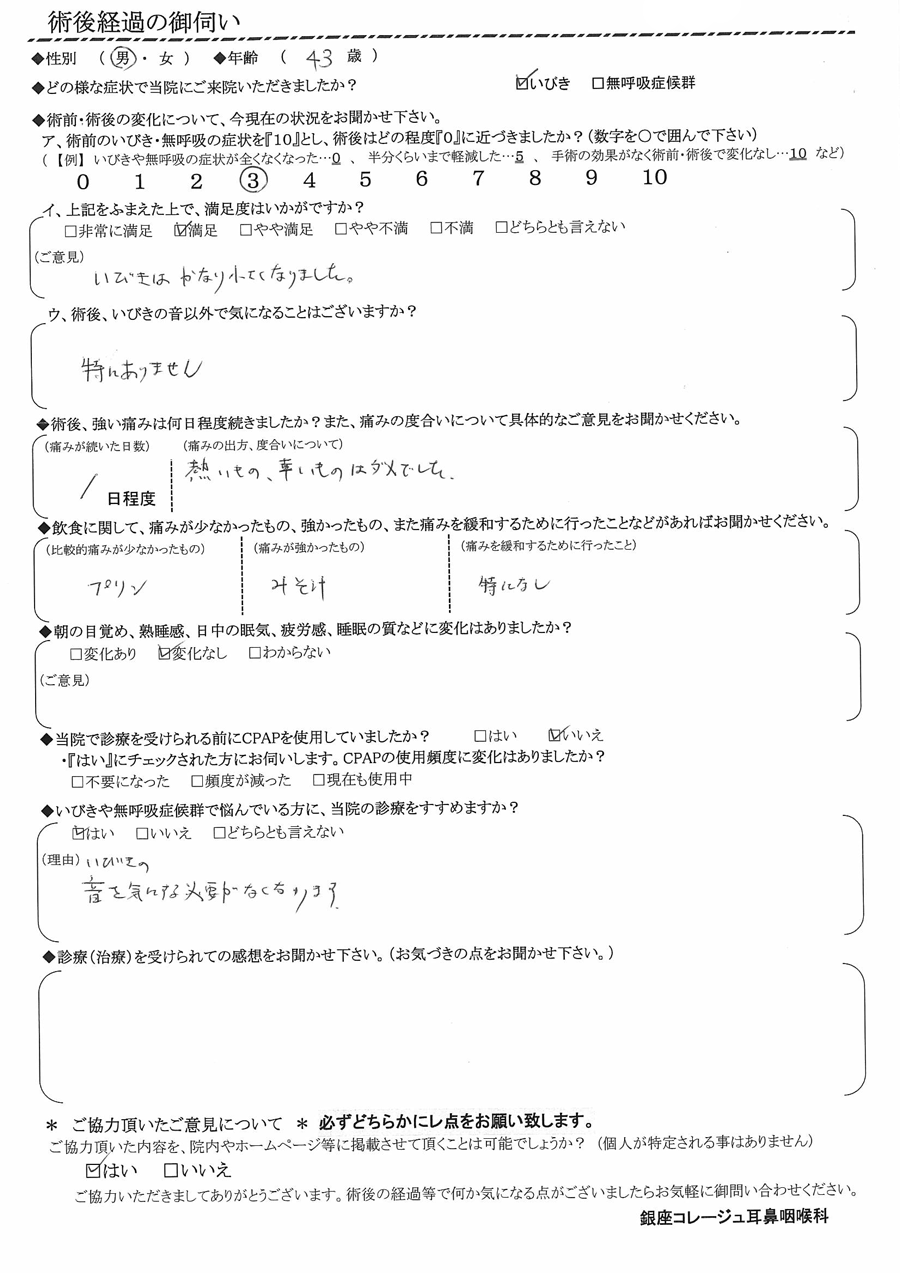 術後経過の御伺い
◆性別 （ 男 ・ 女 ） ◆年齢 （ 43 歳 ）
◆どの様な症状で当院にご来院いただきましたか？ ☑いびき □無呼吸症候群
◆術前・術後の変化について、今現在の状況をお聞かせ下さい。
ア、術前のいびき・無呼吸の症状を『10』とし、術後はどの程度『0』に近づきましたか？（数字を○で囲んで下さい）
（【例】いびきや無呼吸の症状が全くなくなった…0 、 半分くらいまで軽減した…5 、 手術の効果がなく術前・術後で変化なし…10 など）
0 1 2 ③ 4 5 6 7 8 9 10
イ、上記をふまえた上で、満足度はいかがですか？
□非常に満足 ☑満足 □やや満足 □やや不満 □不満 □どちらとも言えない
（ご意見）
いびきは かなり小さくなりました。
ウ、術後、いびきの音以外で気になることはございますか？
特にありません
◆術後、強い痛みは何日程度続きましたか？また、痛みの度合いについて具体的なご意見をお聞かせください。
（痛みが続いた日数） （痛みの出方、度合いについて）
熱いもの、辛いものはダメでした.
/ 日程度
◆飲食に関して、痛みが少なかったもの、強かったもの、また痛みを緩和するために行ったことなどがあればお聞かせください。
（比較的痛みが少なかったもの） （痛みが強かったもの） （痛みを緩和するために行ったこと）
プリン みそ汁 特になし
◆朝の目覚め、熟睡感、日中の眠気、疲労感、睡眠の質などに変化はありましたか？
□変化あり ☑変化なし □わからない
（ご意見）
◆当院で診療を受けられる前にCPAPを使用していましたか？ □はい ☑いいえ
・『はい』にチェックされた方にお伺いします。CPAPの使用頻度に変化はありましたか？
□不要になった □頻度が減った □現在も使用中
◆いびきや無呼吸症候群で悩んでいる方に、当院の診療をすすめますか？
☑はい □いいえ □どちらとも言えない
（理由） いびきの
音を気にする必要がなくなります.
◆診療（治療）を受けられての感想をお聞かせ下さい。（お気づきの点をお聞かせ下さい。）
＊ ご協力頂いたご意見について ＊ 必ずどちらかにレ点をお願い致します。
ご協力頂いた内容を、院内やホームページ等に掲載させて頂くことは可能でしょうか？ （個人が特定される事はありません）
☑はい □いいえ
ご協力いただきましてありがとうございます。術後の経過等で何か気になる点がございましたらお気軽に御問い合わせください。
銀座コレージュ耳鼻咽喉科